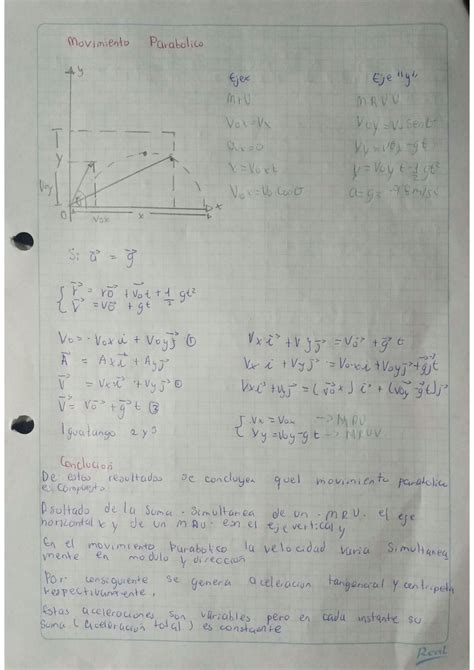 Movimiento Parabolico
y
Eje x
Eje "y"
MRU
MRUV
Vox = Vx
Voy = Vo Senθ
ax = 0
Vy = Voy - gt
x = Voxt
y = Voyt - 1/2 gt²
Vox = Vo Cosθ
a = g = -9.8 m/s²
y
Voy
0
Vox
x
x
Si a⃗ = g⃗
r⃗ = r⃗o + v⃗o t + 1/2 gt²
v⃗ = v⃗o + gt
Vo = Vox i + Voy j ①
A⃗ = Ax i + Ay j
V⃗ = Vx i + Vy j ②
V⃗ = Vo + g t ③
Igualando 2 y 3
Vx i + Vy j = Vo + g t
Vx i + Vy j = Vox i + Voy j + (-g j) t
Vx i + Vy j = (Vox) i + (Voy - g t) j
Vx = Vox -> MRU
Vy = Voy - g t -> MRUV
Conclucion
De estos resultados se concluyen quel movimiento parabolico
es compuesto
Rsultado de la Suma Simultanea de un MRU el eje
horizontal x y de un MRU en el eje vertical y
En el movimiento Parabolico la velocidad varia Simultanea
mente en modulo y direccion
Por consiguiente se genera aceleracion tangencial y centripeta
respectivamente.
Estas aceleraciones son variables pero en cada instante su
suma (aceleración total) es constante
Real